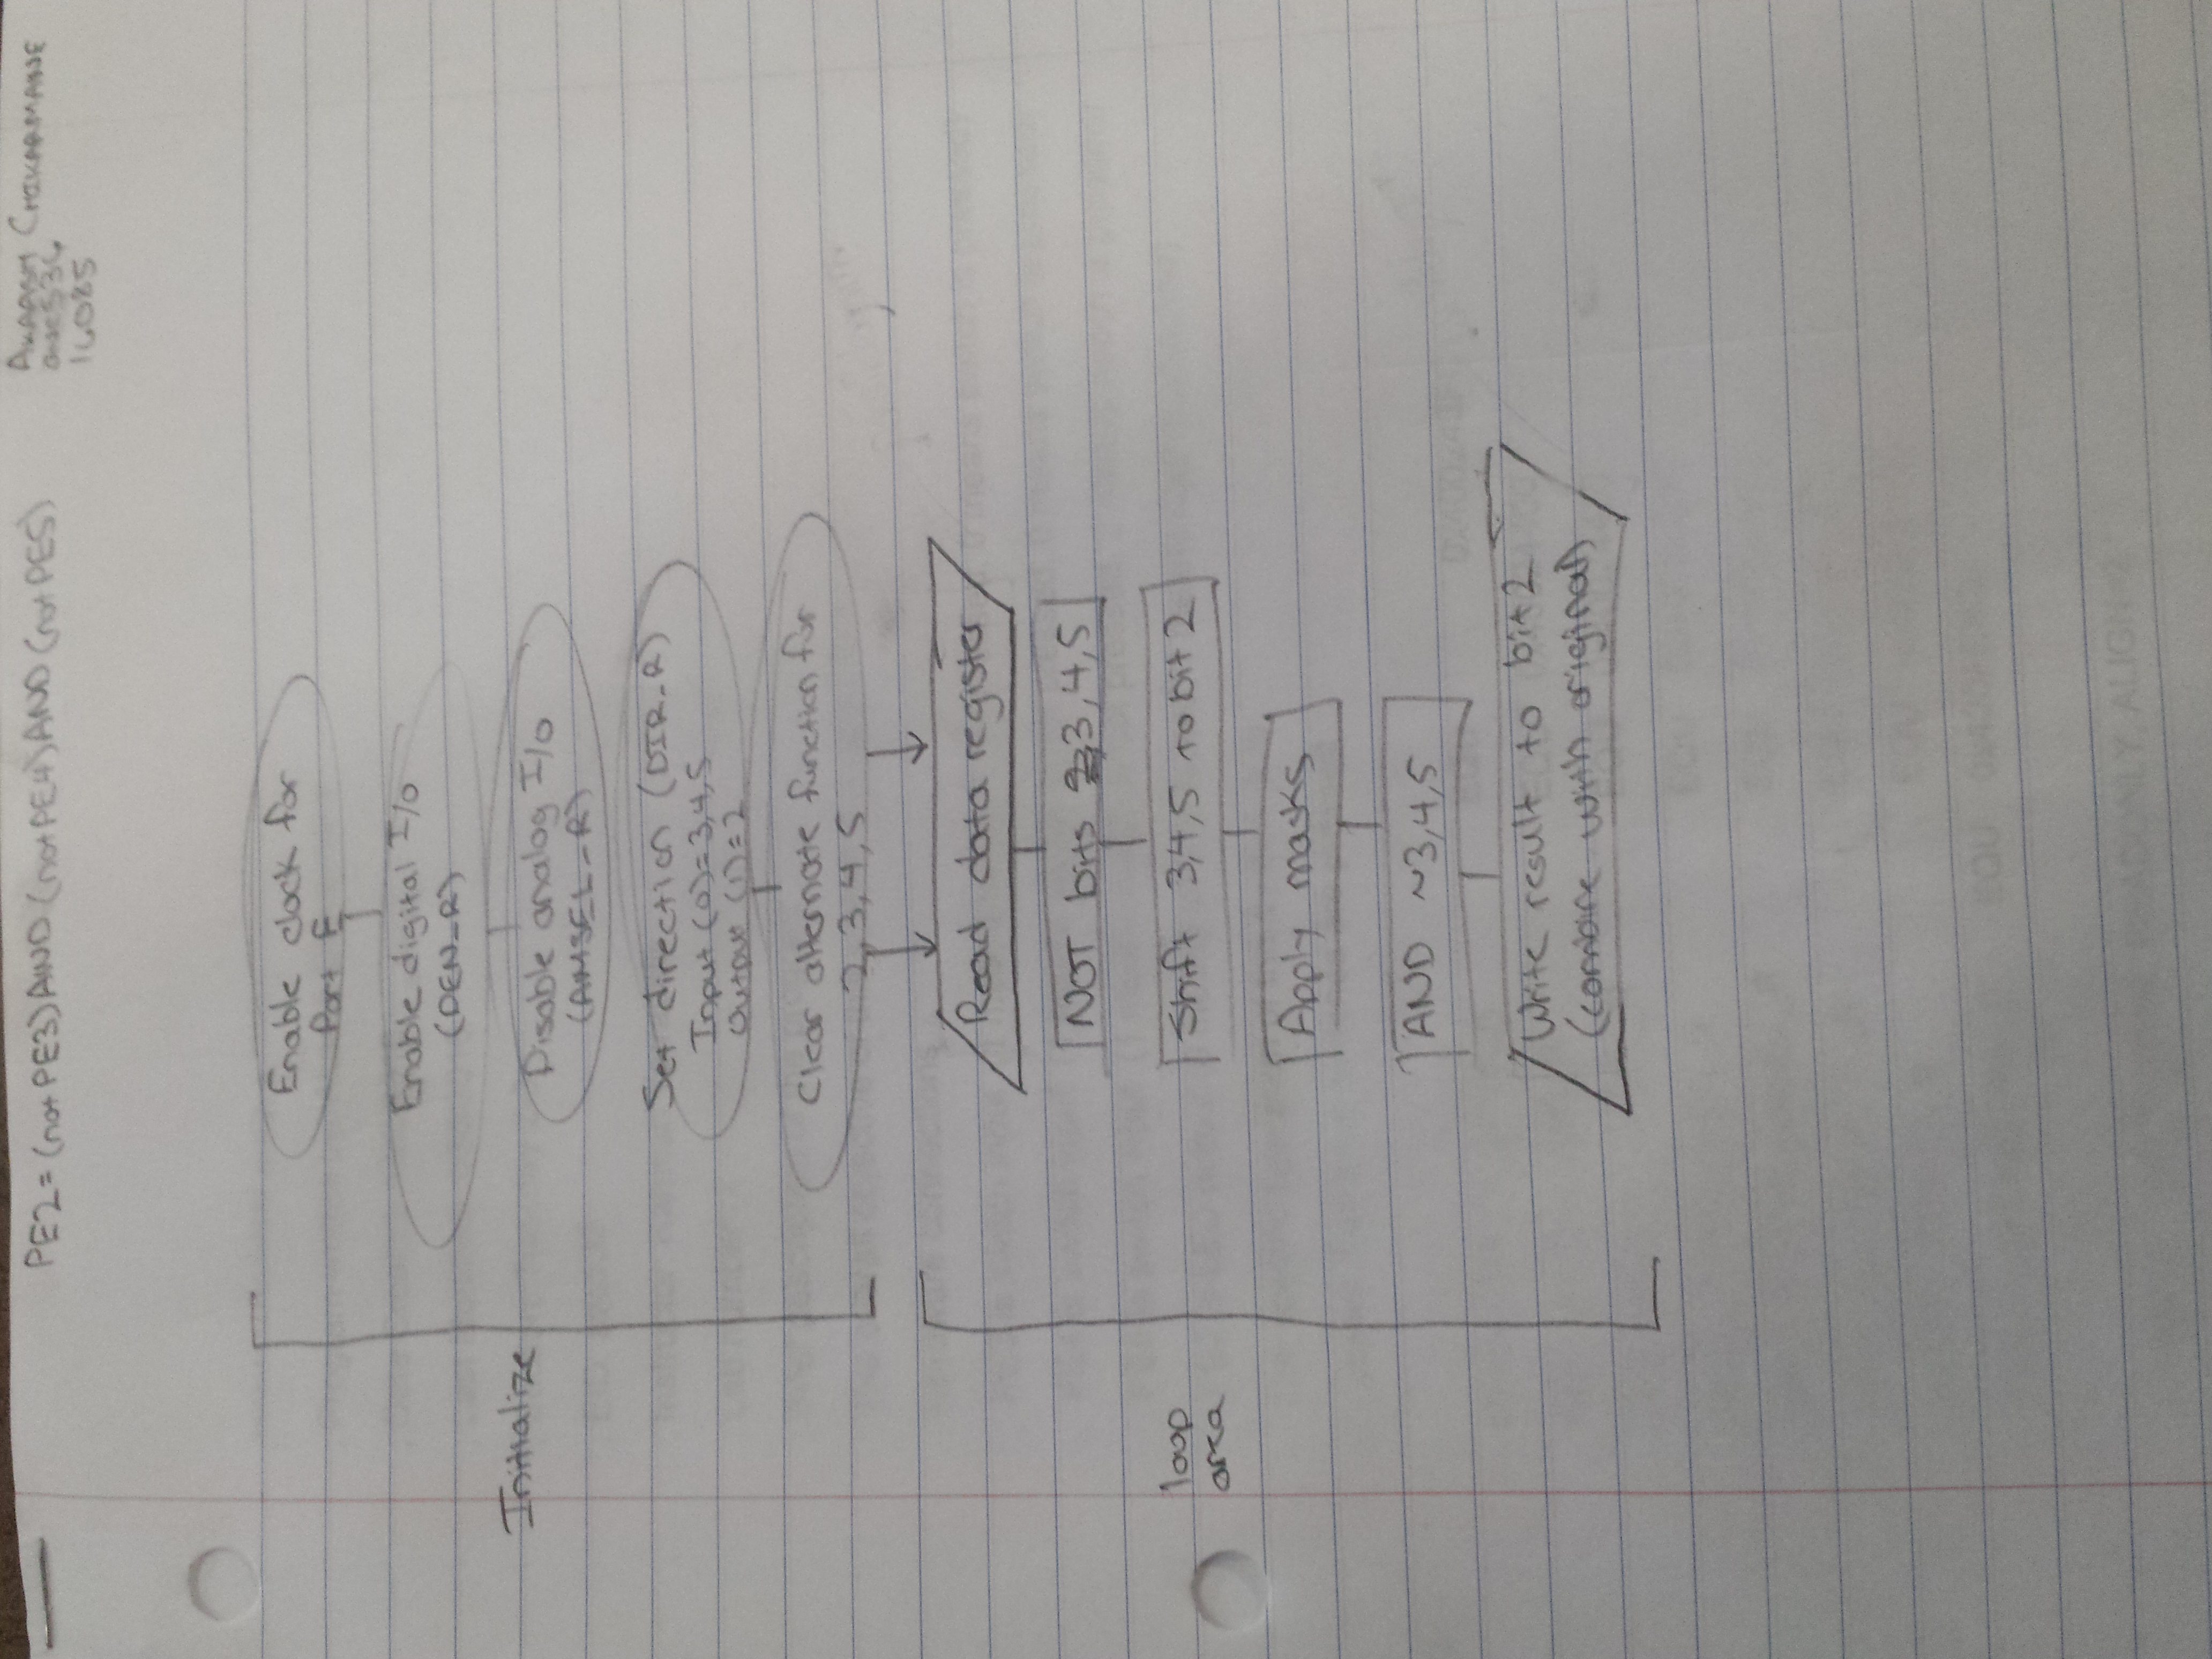 PE2 = (not PE3) AND (not PE4) AND (not PE5)
16085
Initialize
Enable clock for
Port E
Enable digital I/O
(DEN_R)
Disable analog I/O
(AMSEL_R)
Set direction (DIR_R)
Input (0)=3,4,5
Output (1)=2
Clear alternate function for
2,3,4,5
loop
area
Read data register
NOT bits 3,4,5
Shift 3,4,5 to bit 2
Apply masks
AND ~3,4,5
Write result to bit 2
(combine with original)